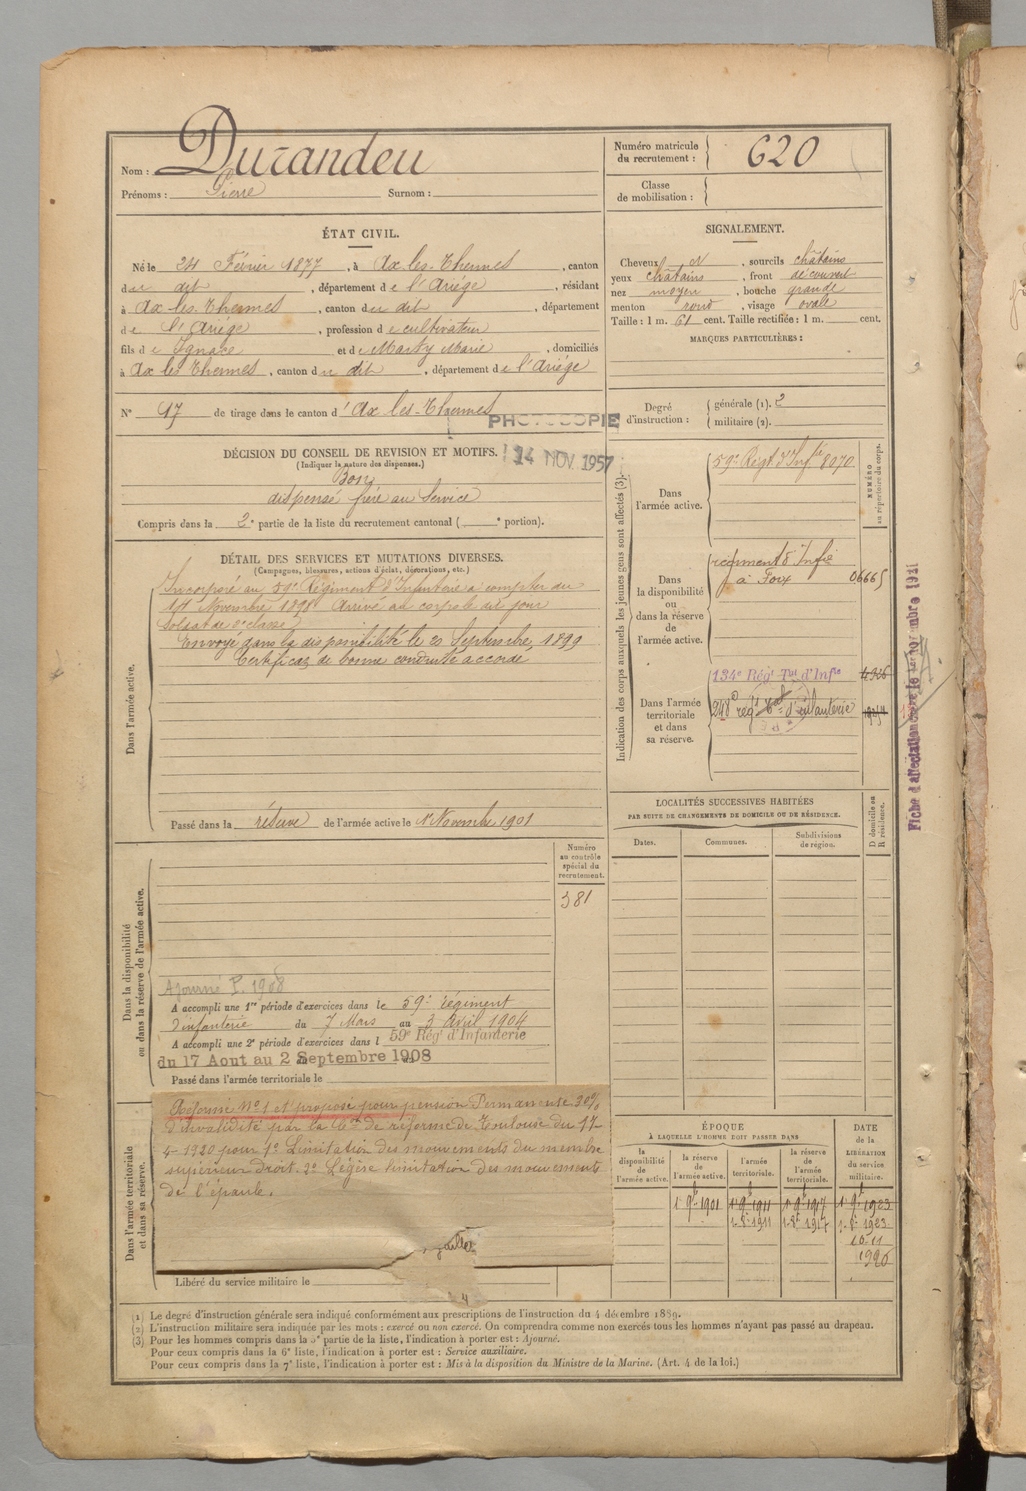 Nom : Durandeu
Prénoms : Pierre Surnom :
Numéro matricule
du recrutement : 620
Classe
de mobilisation :
ÉTAT CIVIL.
Né le 24 Février 1877, à Ax-les-Thermes, canton
du dit, département de l'Ariège, résidant
à Ax-les-Thermes, canton du dit, département
de l'Ariège, profession de cultivateur
fils de Ignace et de Marty Marie, domiciliés
à Ax les Thermes, canton du dit, département de l'Ariège
SIGNALEMENT.
Cheveux N, sourcils châtains
yeux châtains, front découvert
nez moyen, bouche grande
menton rond, visage ovale
Taille : 1 m. 61 cent. Taille rectifiée : 1 m. cent.
MARQUES PARTICULIÈRES :
N° 17 de tirage dans le canton d'Ax-les-Thermes
PHOTOCOPIE
14 NOV. 1957
Degré
d'instruction :
générale (1). 2
militaire (2).
DÉCISION DU CONSEIL DE REVISION ET MOTIFS.
(Indiquer la nature des dispenses.)
Bon
dispensé frère au Service
Compris dans la 2e partie de la liste du recrutement cantonal ( e portion).
DÉTAIL DES SERVICES ET MUTATIONS DIVERSES.
(Campagnes, blessures, actions d'éclat, décorations, etc.)
Dans l'armée active.
Incorporé au 59e Régiment d'Infanterie à compter du
Novembre 1898 Arrivé au corps le dit jour
Soldat de 2e classe
Envoyé dans la disponibilité le 20 Septembre 1899
Certificat de bonne conduite accordé
Passé dans la réserve de l'armée active le 1er Novembre 1901
Indication des corps auxquels les jeunes gens sont affectés (3).
NUMÉRO
au répertoire du corps.
Dans
l'armée active.
59e Régt d'Infie 8070
Dans
la disponibilité
ou
dans la réserve
de
l'armée active.
régiment d'Infie
à Foix 06665
Dans l'armée
territoriale
et dans
sa réserve.
134e Régt Tal d'Infie 4326
248e régt Tal d'infanterie
Fiche d'affectation
LOCALITÉS SUCCESSIVES HABITÉES
PAR SUITE DE CHANGEMENTS DE DOMICILE OU DE RÉSIDENCE.
Dates. Communes. Subdivisions
de région.
D domicile ou
R résidence.
Dans la disponibilité
ou dans la réserve de l'armée active.
Numéro
au contrôle
spécial du
recrutement.
381
Ajourné P. 1908
A accompli une 1re période d'exercices dans le 59e régiment
d'infanterie du 7 Mars au 3 avril 1904
A accompli une 2e période d'exercices dans l 59e Rég' d'Infanterie
du 17 Aout au 2 Septembre 1908
Passé dans l'armée territoriale le
Dans l'armée territoriale
et dans sa réserve.
Réformé N°1 et proposé pour pension Permanente 30%
d'invalidité par la Con de réforme de Toulouse du 17-
4-1920 pour 1° Limitation des mouvements du membre
supérieur Droit. 2° Légère limitation des mouvements
de l'épaule.
Libéré du service militaire le
ÉPOQUE
À LAQUELLE L'HOMME DOIT PASSER DANS
la
disponibilité
de
l'armée active.
la réserve
de
l'armée active.
l'armée
territoriale.
la réserve
de
l'armée
territoriale.
DATE
de la
LIBÉRATION
du service
militaire.
1er 9bre 1901 1er 9bre 1911 1er 9bre 1917 1er 9bre 1923
1er 8bre 1911 1er 8bre 1917 1er 8bre 1923
10-11
1926
(1) Le degré d'instruction générale sera indiqué conformément aux prescriptions de l'instruction du 4 décembre 1889.
(2) L'instruction militaire sera indiquée par les mots : exercé ou non exercé. On comprendra comme non exercés tous les hommes n'ayant pas passé au drapeau.
(3) Pour les hommes compris dans la 5e partie de la liste, l'indication à porter est : Ajourné.
Pour ceux compris dans la 6e liste, l'indication à porter est : Service auxiliaire.
Pour ceux compris dans la 7e liste, l'indication à porter est : Mis à la disposition du Ministre de la Marine. (Art. 4 de la loi.)